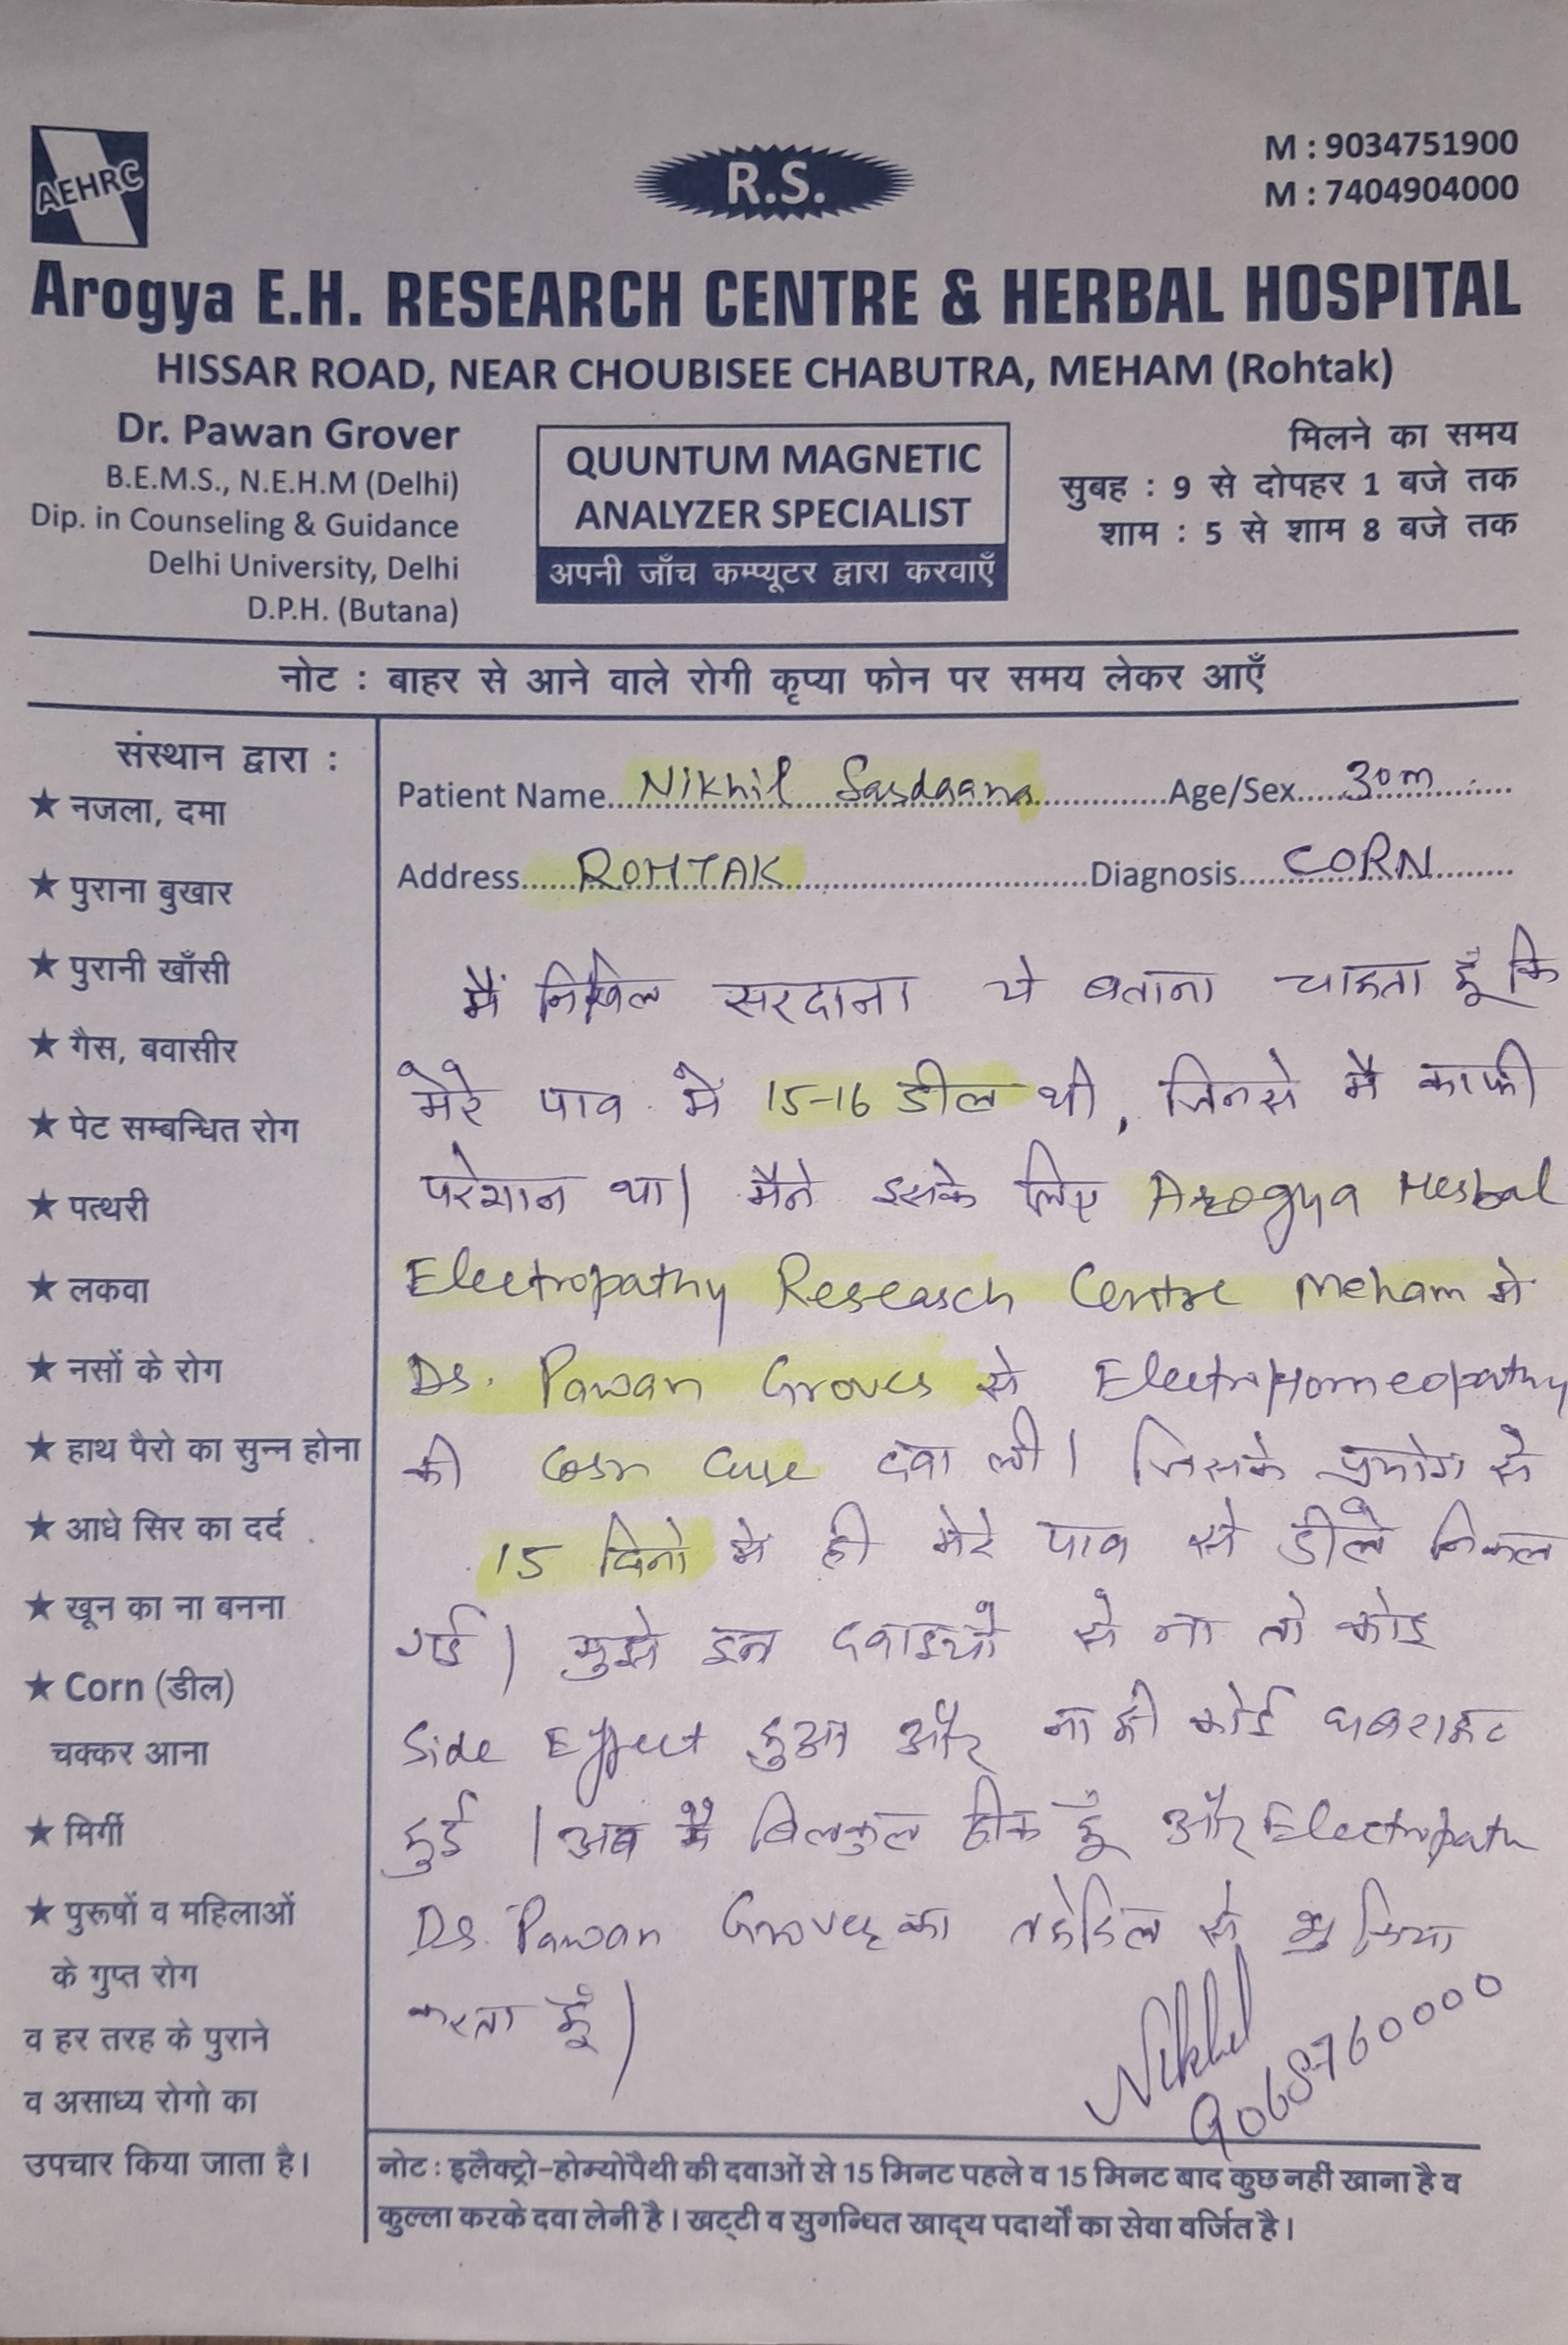 AEHRC
R.S.
M : 9034751900
M : 7404904000
Arogya E.H. RESEARCH CENTRE & HERBAL HOSPITAL
HISSAR ROAD, NEAR CHOUBISEE CHABUTRA, MEHAM (Rohtak)
Dr. Pawan Grover
B.E.M.S., N.E.H.M (Delhi)
Dip. in Counseling & Guidance
Delhi University, Delhi
D.P.H. (Butana)
QUUNTUM MAGNETIC
ANALYZER SPECIALIST
अपनी जाँच कम्प्यूटर द्वारा करवाएँ
मिलने का समय
सुबह : 9 से दोपहर 1 बजे तक
शाम : 5 से शाम 8 बजे तक
नोट : बाहर से आने वाले रोगी कृप्या फोन पर समय लेकर आएँ
संस्थान द्वारा :
★ नजला, दमा
★ पुराना बुखार
★ पुरानी खाँसी
★ गैस, बवासीर
★ पेट सम्बन्धित रोग
★ पत्थरी
★ लकवा
★ नसों के रोग
★ हाथ पैरो का सुन्न होना
★ आधे सिर का दर्द
★ खून का ना बनना
★ Corn (डील)
चक्कर आना
★ मिर्गी
★ पुरूषों व महिलाओं
के गुप्त रोग
व हर तरह के पुराने
व असाध्य रोगो का
उपचार किया जाता है।
Patient Name Nikhil Sardaana Age/Sex 30m
Address ROHTAK Diagnosis CORN
मैं निखिल सरदाना ये बताना चाहता हूँ कि
मेरे पाव में 15-16 डील थी, जिनसे मै काफी
परेशान था। मैने इसके लिए Arogya Herbal
Electropathy Research Centre Meham मे
Dr. Pawan Grover से ElectroHomeopathy
की Corn Cure दवा ली। जिसके प्रयोग से
15 दिनो मे ही मेरे पाव से डीले निकल
गई। मुझे इन दवाइयों से ना तो कोइ
Side Effect हुआ और ना ही कोई घबराहट
हुई। अब मैं बिलकुल ठीक हूँ और Electropath
Dr. Pawan Grover का तहेदिल से शुक्रिया
करता हूँ।
Nikhil
9068760000
नोट : इलैक्ट्रो-होम्योपैथी की दवाओं से 15 मिनट पहले व 15 मिनट बाद कुछ नहीं खाना है व
कुल्ला करके दवा लेनी है। खट्टी व सुगन्धित खाद्य पदार्थों का सेवा वर्जित है।